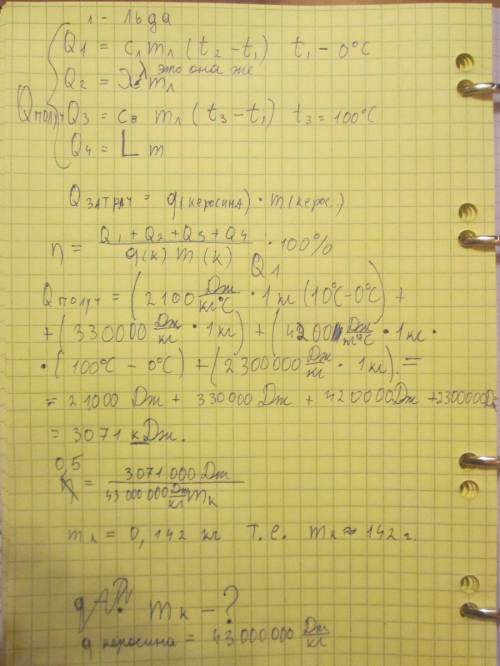 л - льда
Q1 = cл mл (t2 - t1) t1 - 0°C
Q2 = λ mл это она же
Qполуч Q3 = cв mл (t3 - t1) t3 = 100°C
Q4 = L m
Qзатрач = q(керосина) · m(керос.)
η = Q1 + Q2 + Q3 + Q4 / q(к) m(к) · 100%
Q1
Qполуч = (2100 Дж/кг°C · 1 кг (10°C - 0°C) +
+ (330000 Дж/кг · 1кг) + (4200 Дж/кг°C · 1 кг ·
· (100°C - 0°C) + (2300000 Дж/кг · 1кг) =
= 21000 Дж + 330000 Дж + 420000 Дж + 2300000 Дж
= 3071 кДж.
0,5 = 3071000 Дж / 43000000 Дж/кг mк
mк = 0,142 кг т.е. mк ≈ 142 г.
mк - ?
q керосина = 43000000 Дж/кг